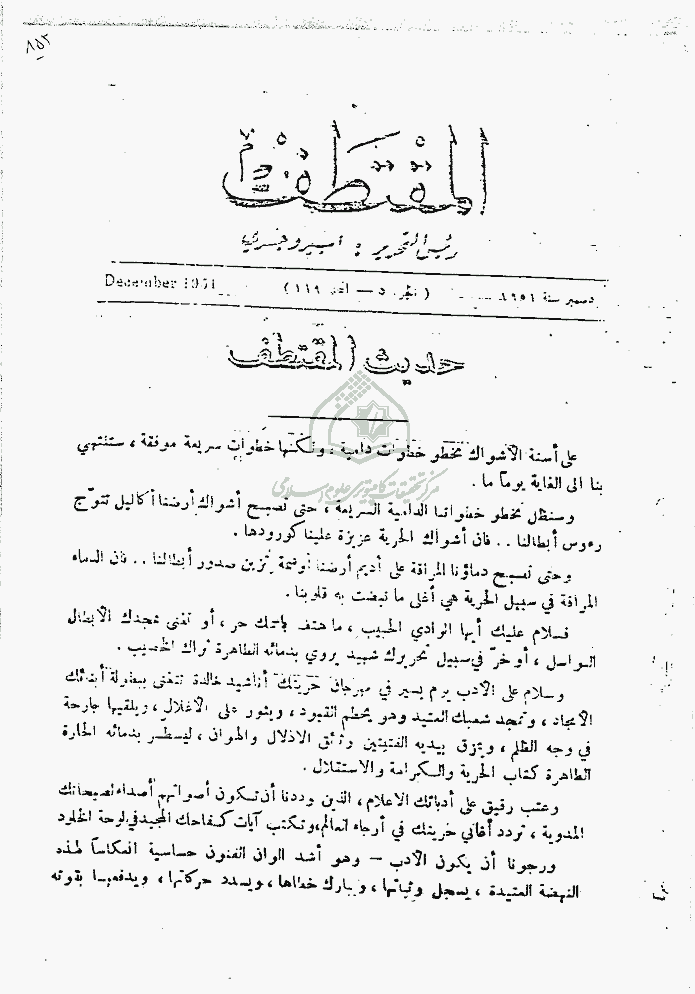 ٨٥٢
المقتطف
رئيس التحرير : اسبيرو جسري
دسمبر سنة ١٩٥١ ( الجزء ٥ — المجلد ١١٩ ) December 1951
حديث المقتطف
مركز تحقيقات كامپيوترى علوم اسلامى
على أسنة الأشواك نخطو خطوات دامية : ولكنها خطوات سريعة موفقة ، ستنتهي
بنا الى الغاية يوماً ما .
وسنظل نخطو خطواتنا الدامية السريعة ، حتى تصبح أشواك أرضنا أكاليل تتوّج
رءوس أبطالنا .. فان أشواك الحرية عزيزة علينا كورودها .
وحتى تصبح دماؤنا المراقة على أديم أرضنا أوسمة تزين صدور أبطالنا .. فان الدماء
المراقة في سبيل الحرية هي أغلى ما نبضت به قلوبنا .
فسلام عليك أيها الوادي الحبيب ، ما هتف باسمك حر ، أو تغنى بمجدك الأبطال
البواسل ، أو خرّ في سبيل تحريرك شهيد يروي بدمائه الطاهرة ثراك الخصيب .
وسلام على الأدب يوم يسير في مهرجان حريتك أناشيد خالدة تتغنى ببطولة أبنائك
الأمجاد ، وتمجد شعبك العتيد وهو يحطم القيود ، ويثور على الأغلال ، ويلقيها جارحة
في وجه الظلم ، ويمزق بيديه الفتيتين وثائق الاذلال والهوان ، ليسطّر بدمائه الحارة
الطاهرة كتاب الحرية والكرامة والاستقلال .
وعتب رفيق على أدبائك الاعلام ، الذين وددنا أن تكون أصواتهم أصداء لصيحاتك
المدوية ، تردد أغاني حريتك في أرجاء العالم ، وتكتب آيات كفاحك المجيد في لوحة الخلود
ورجونا أن يكون الأدب — وهو أشد الوان الفنون حساسية انعكاساً لهذه
النهضة العتيدة ، يسجل وثباتها ، ويبارك خطاها ، ويسدد حركاتها ، ويدفعها بقوته